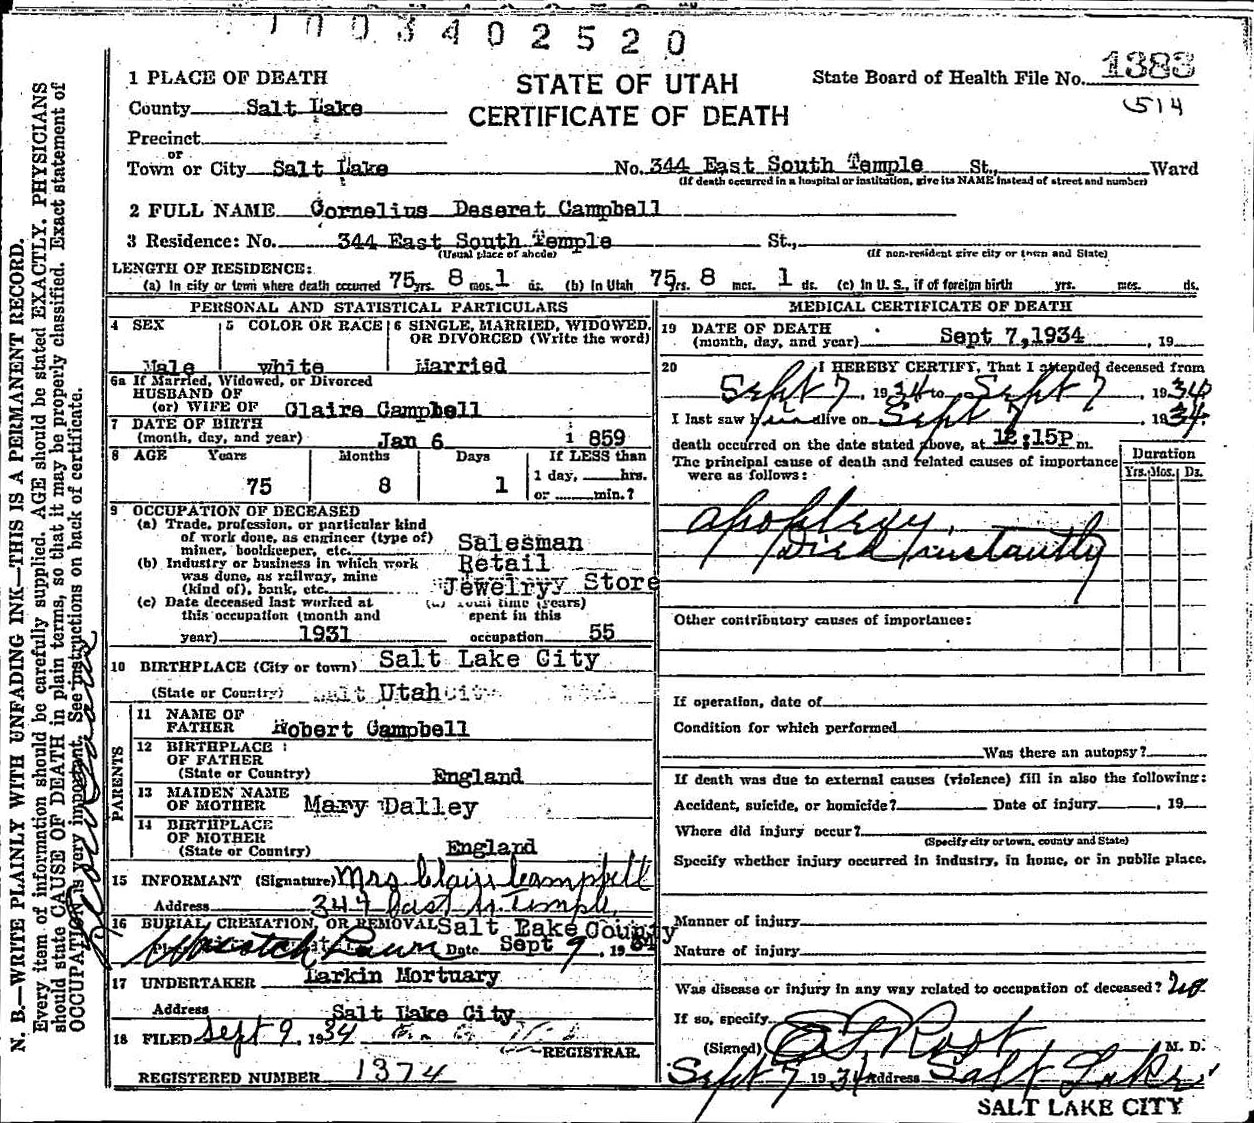 1003402520
1 PLACE OF DEATH
STATE OF UTAH
CERTIFICATE OF DEATH
State Board of Health File No. 1383
514
County Salt Lake
Precinct
or
Town or City Salt Lake No. 344 East South Temple St., Ward
(If death occurred in a hospital or institution, give its NAME instead of street and number)
2 FULL NAME Cornelius Deseret Campbell
3 Residence: No. 344 East South Temple St.,
(Usual place of abode) (If non-resident give city or town and State)
LENGTH OF RESIDENCE:
(a) In city or town where death occurred 75 yrs. 8 mos. 1 ds. (b) In Utah 75 yrs. 8 mos. 1 ds. (c) In U. S., if of foreign birth yrs. mos. ds.
PERSONAL AND STATISTICAL PARTICULARS
4 SEX Male
5 COLOR OR RACE white
6 SINGLE, MARRIED, WIDOWED, OR DIVORCED (Write the word)
Married
6a If Married, Widowed, or Divorced
HUSBAND OF
(or) WIFE OF Claire Campbell
7 DATE OF BIRTH
(month, day, and year) Jan 6 1859
8 AGE Years Months Days If LESS than
1 day, hrs.
75 8 1 or min.?
9 OCCUPATION OF DECEASED
(a) Trade, profession, or particular kind
of work done, as engineer (type of)
miner, bookkeeper, etc. Salesman
(b) Industry or business in which work Retail
was done, as railway, mine
(kind of), bank, etc. Jewelryy Store
(c) Date deceased last worked at
this occupation (month and
year) 1931
(d) Total time (years)
spent in this
occupation 55
10 BIRTHPLACE (City or town) Salt Lake City
(State or Country) Utah
PARENTS
11 NAME OF
FATHER Robert Campbell
12 BIRTHPLACE
OF FATHER
(State or Country) England
13 MAIDEN NAME
OF MOTHER Mary Dalley
14 BIRTHPLACE
OF MOTHER
(State or Country) England
15 INFORMANT (Signature) Mrs Clair Campbell
Address 344 East So. Temple
16 BURIAL, CREMATION, OR REMOVAL Salt Lake County
Wasatch Lawn Date Sept 9, 1934
17 UNDERTAKER Larkin Mortuary
Address Salt Lake City
18 FILED Sept 9, 1934
REGISTRAR.
REGISTERED NUMBER 1374
MEDICAL CERTIFICATE OF DEATH
19 DATE OF DEATH
(month, day, and year) Sept 7, 1934, 19
20 I HEREBY CERTIFY, That I attended deceased from
Sept 7, 1934 to Sept 7 1934
I last saw him alive on Sept 7 1934
death occurred on the date stated above, at 12:15P m.
The principal cause of death and related causes of importance
were as follows:
Duration
Yrs. Mos. Ds.
apoplexy,
Died instantly
Other contributory causes of importance:
If operation, date of
Condition for which performed
Was there an autopsy?
If death was due to external causes (violence) fill in also the following:
Accident, suicide, or homicide? Date of injury , 19
Where did injury occur?
(Specify city or town, county and State)
Specify whether injury occurred in industry, in home, or in public place.
Manner of injury
Nature of injury
Was disease or injury in any way related to occupation of deceased? no
If so, specify
(Signed) M. D.
Sept 7 1934 Address Salt Lake
SALT LAKE CITY
N. B.—WRITE PLAINLY WITH UNFADING INK—THIS IS A PERMANENT RECORD.
Every item of information should be carefully supplied. AGE should be stated EXACTLY. PHYSICIANS
should state CAUSE OF DEATH in plain terms, so that it may be properly classified. Exact statement of
OCCUPATION is very important. See instructions on back of certificate.